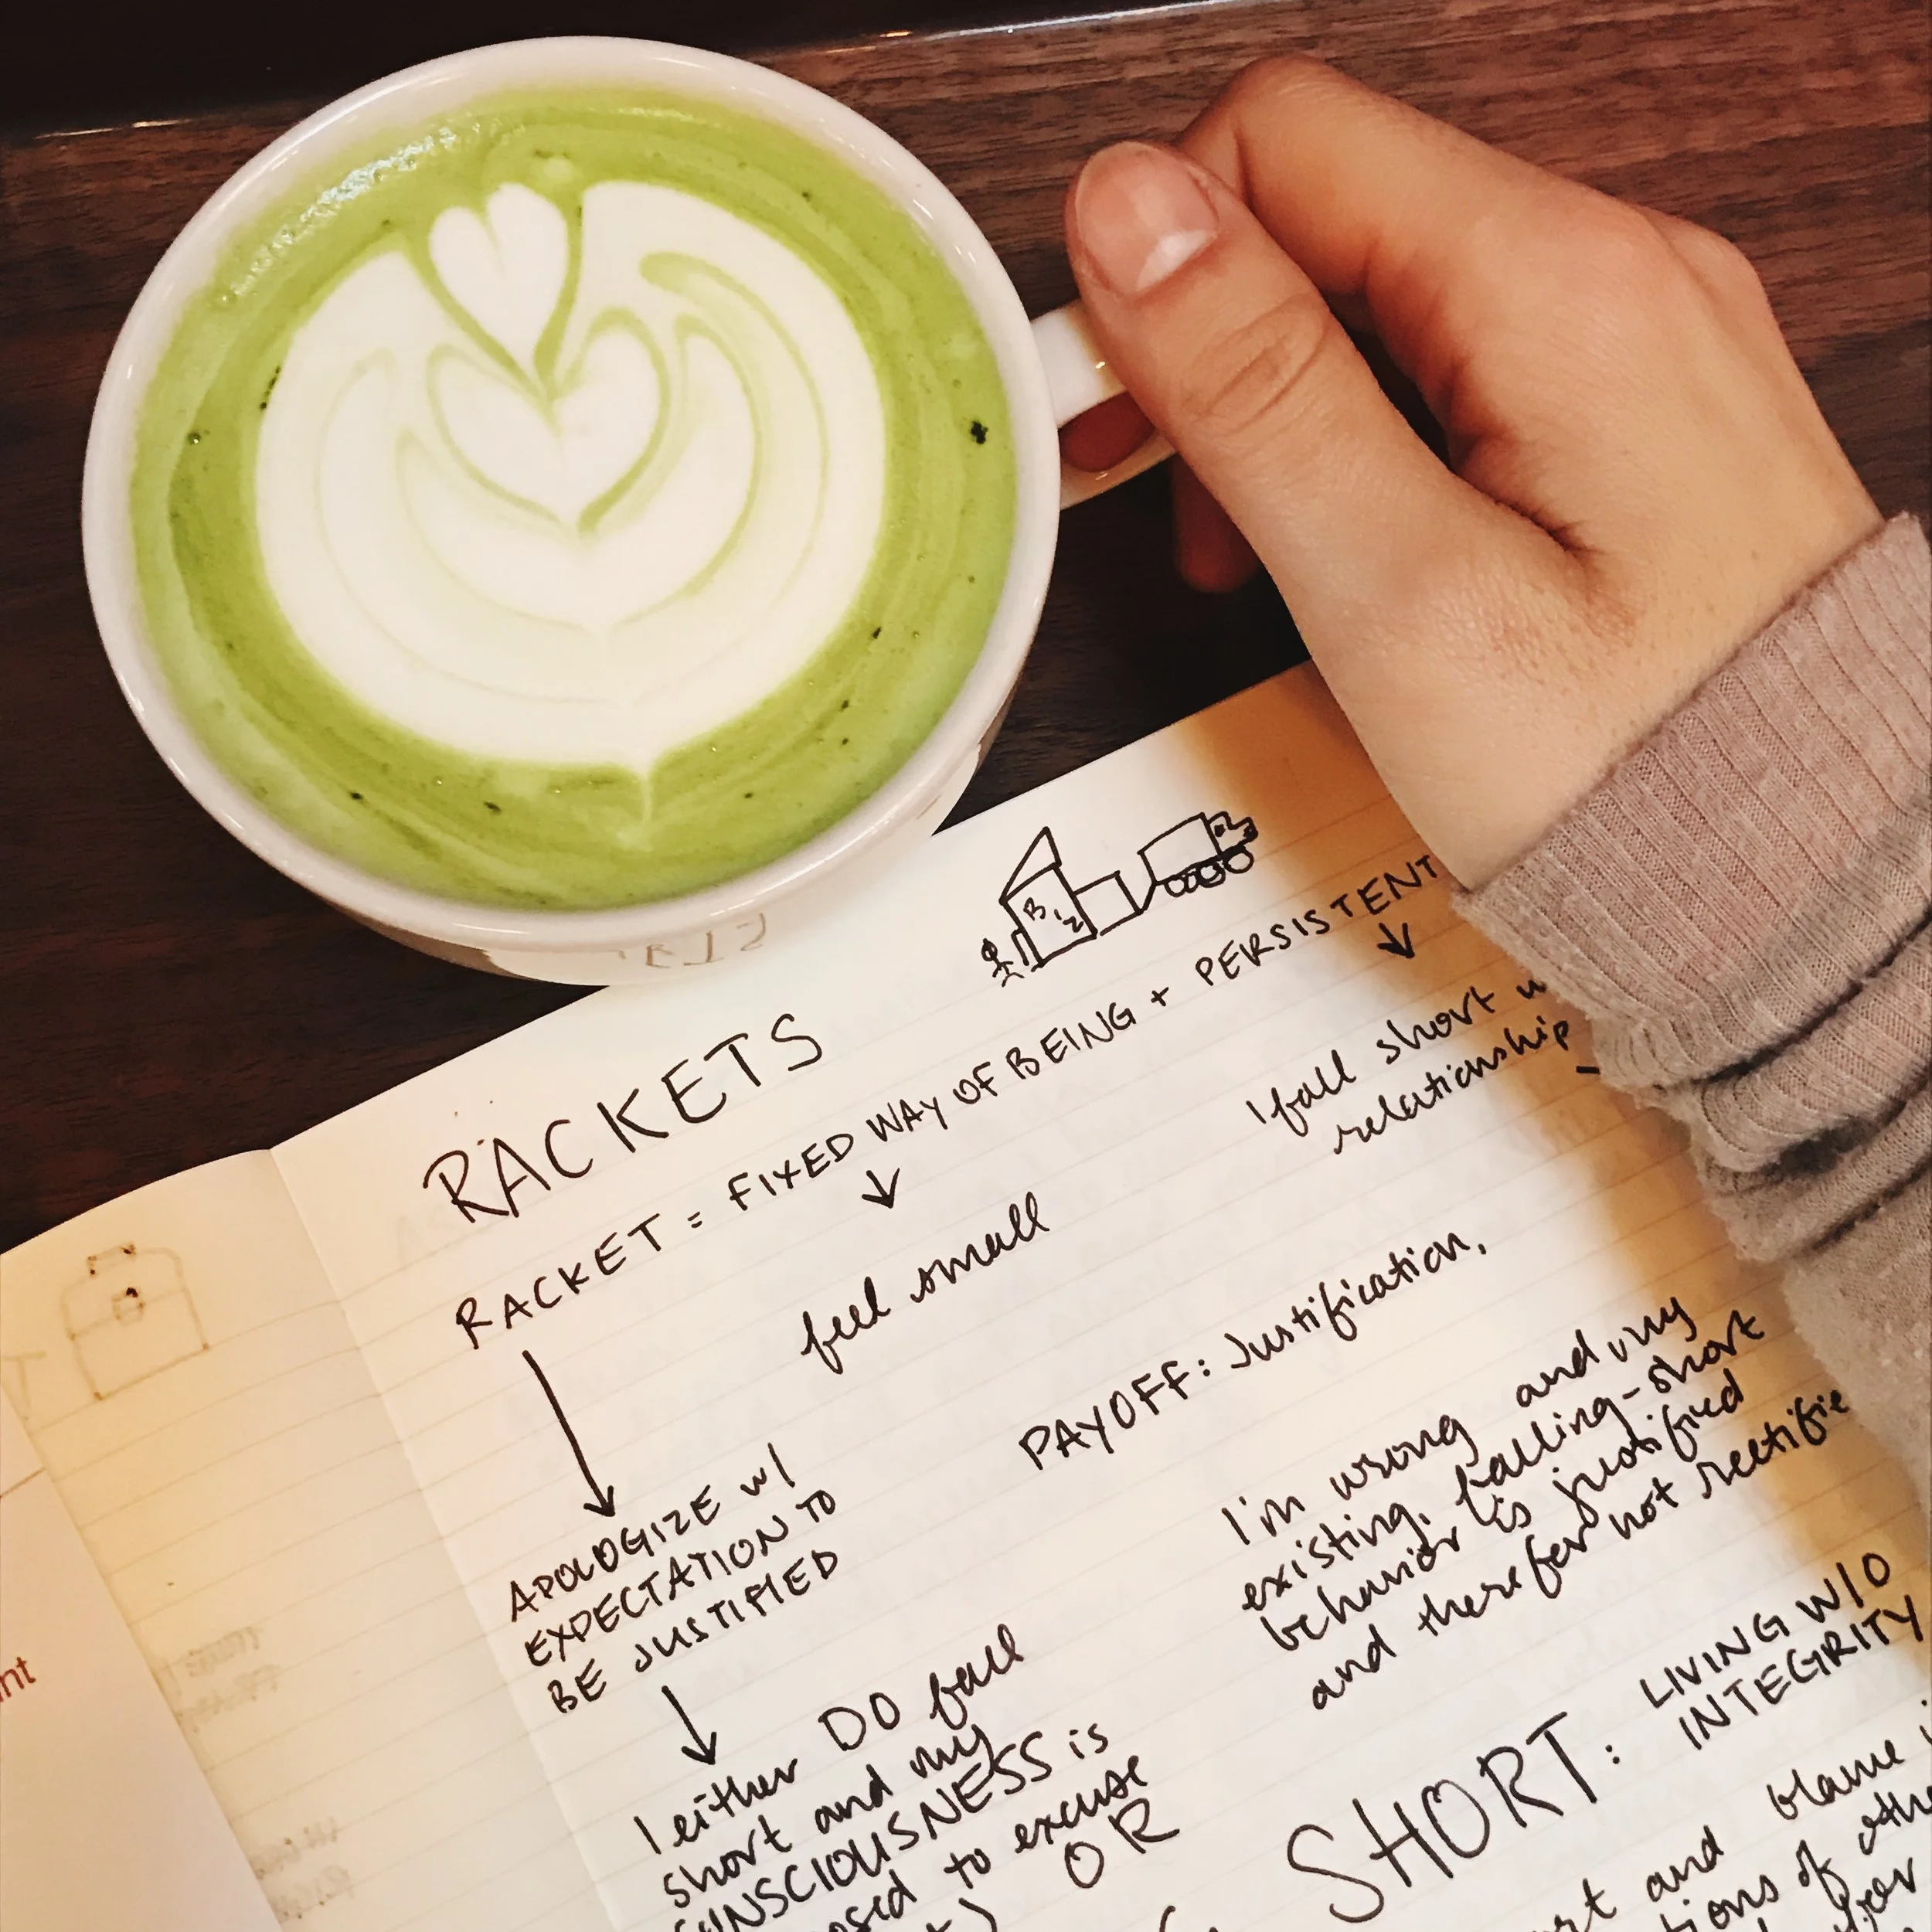 Biz
RACKETS
RACKET = FIXED WAY OF BEING + PERSISTENT
feel small
I fall short
relationship
PAYOFF: Justification,
APOLOGIZE w/
EXPECTATION TO
BE JUSTIFIED
I'm wrong and my
existing, falling-short
behavior is justified
and therefor not rectifie
I either DO fall
short and my
CONSCIOUSNESS is
to excuse
OR
SHORT: LIVING W/O
INTEGRITY
and blame
of
nt